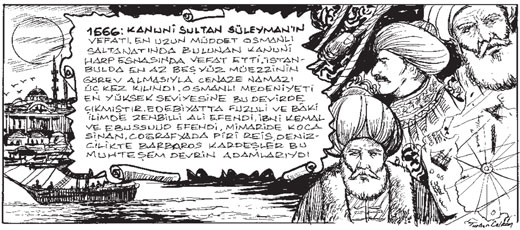 1566: KANUNİ SULTAN SÜLEYMAN'IN
VEFATI, EN UZUN MÜDDET OSMANLI
SALTANATINDA BULUNAN KANUNİ
HARP ESNASINDA VEFAT ETTİ. İSTAN-
BULDA EN AZ BEŞYÜZ MÜEZZİNİN
GÖREV ALMASIYLA CENAZE NAMAZI
ÜÇ KEZ KILINDI. OSMANLI MEDENİYETİ
EN YÜKSEK SEVİYESİNE BU DEVİRDE
ÇIKMIŞTIR. EDEBİYATTA FUZULİ VE BÂKİ
İLİMDE ZENBİLLİ ALİ EFENDİ, İBNİ KEMAL
VE EBUSSUUD EFENDİ, MİMARİDE KOCA
SİNAN, COĞRAFYADA PİRİ REİS, DENİZ-
CİLİKTE BARBAROS KARDEŞLER BU
MUHTEŞEM DEVRİN ADAMLARIYDI